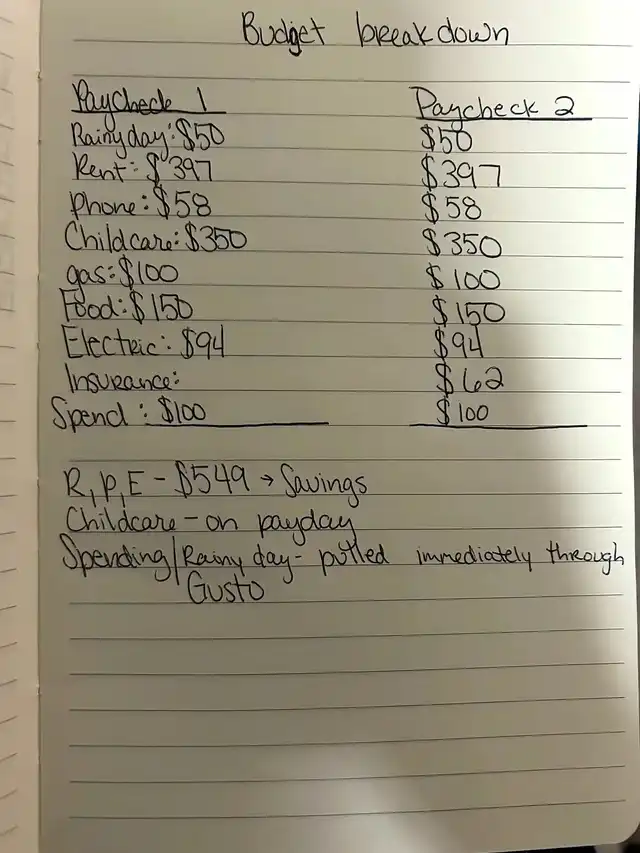 Budget breakdown
Paycheck 1 Paycheck 2
Rainy day: $50 $50
Rent: $397 $397
Phone: $58 $58
Childcare: $350 $350
gas: $100 $100
Food: $150 $150
Electric: $94 $94
Insurance: $62
Spend: $100 $100
R, P, E - $549 → Savings
Childcare - on payday
Spending/Rainy day - pulled immediately through
Gusto